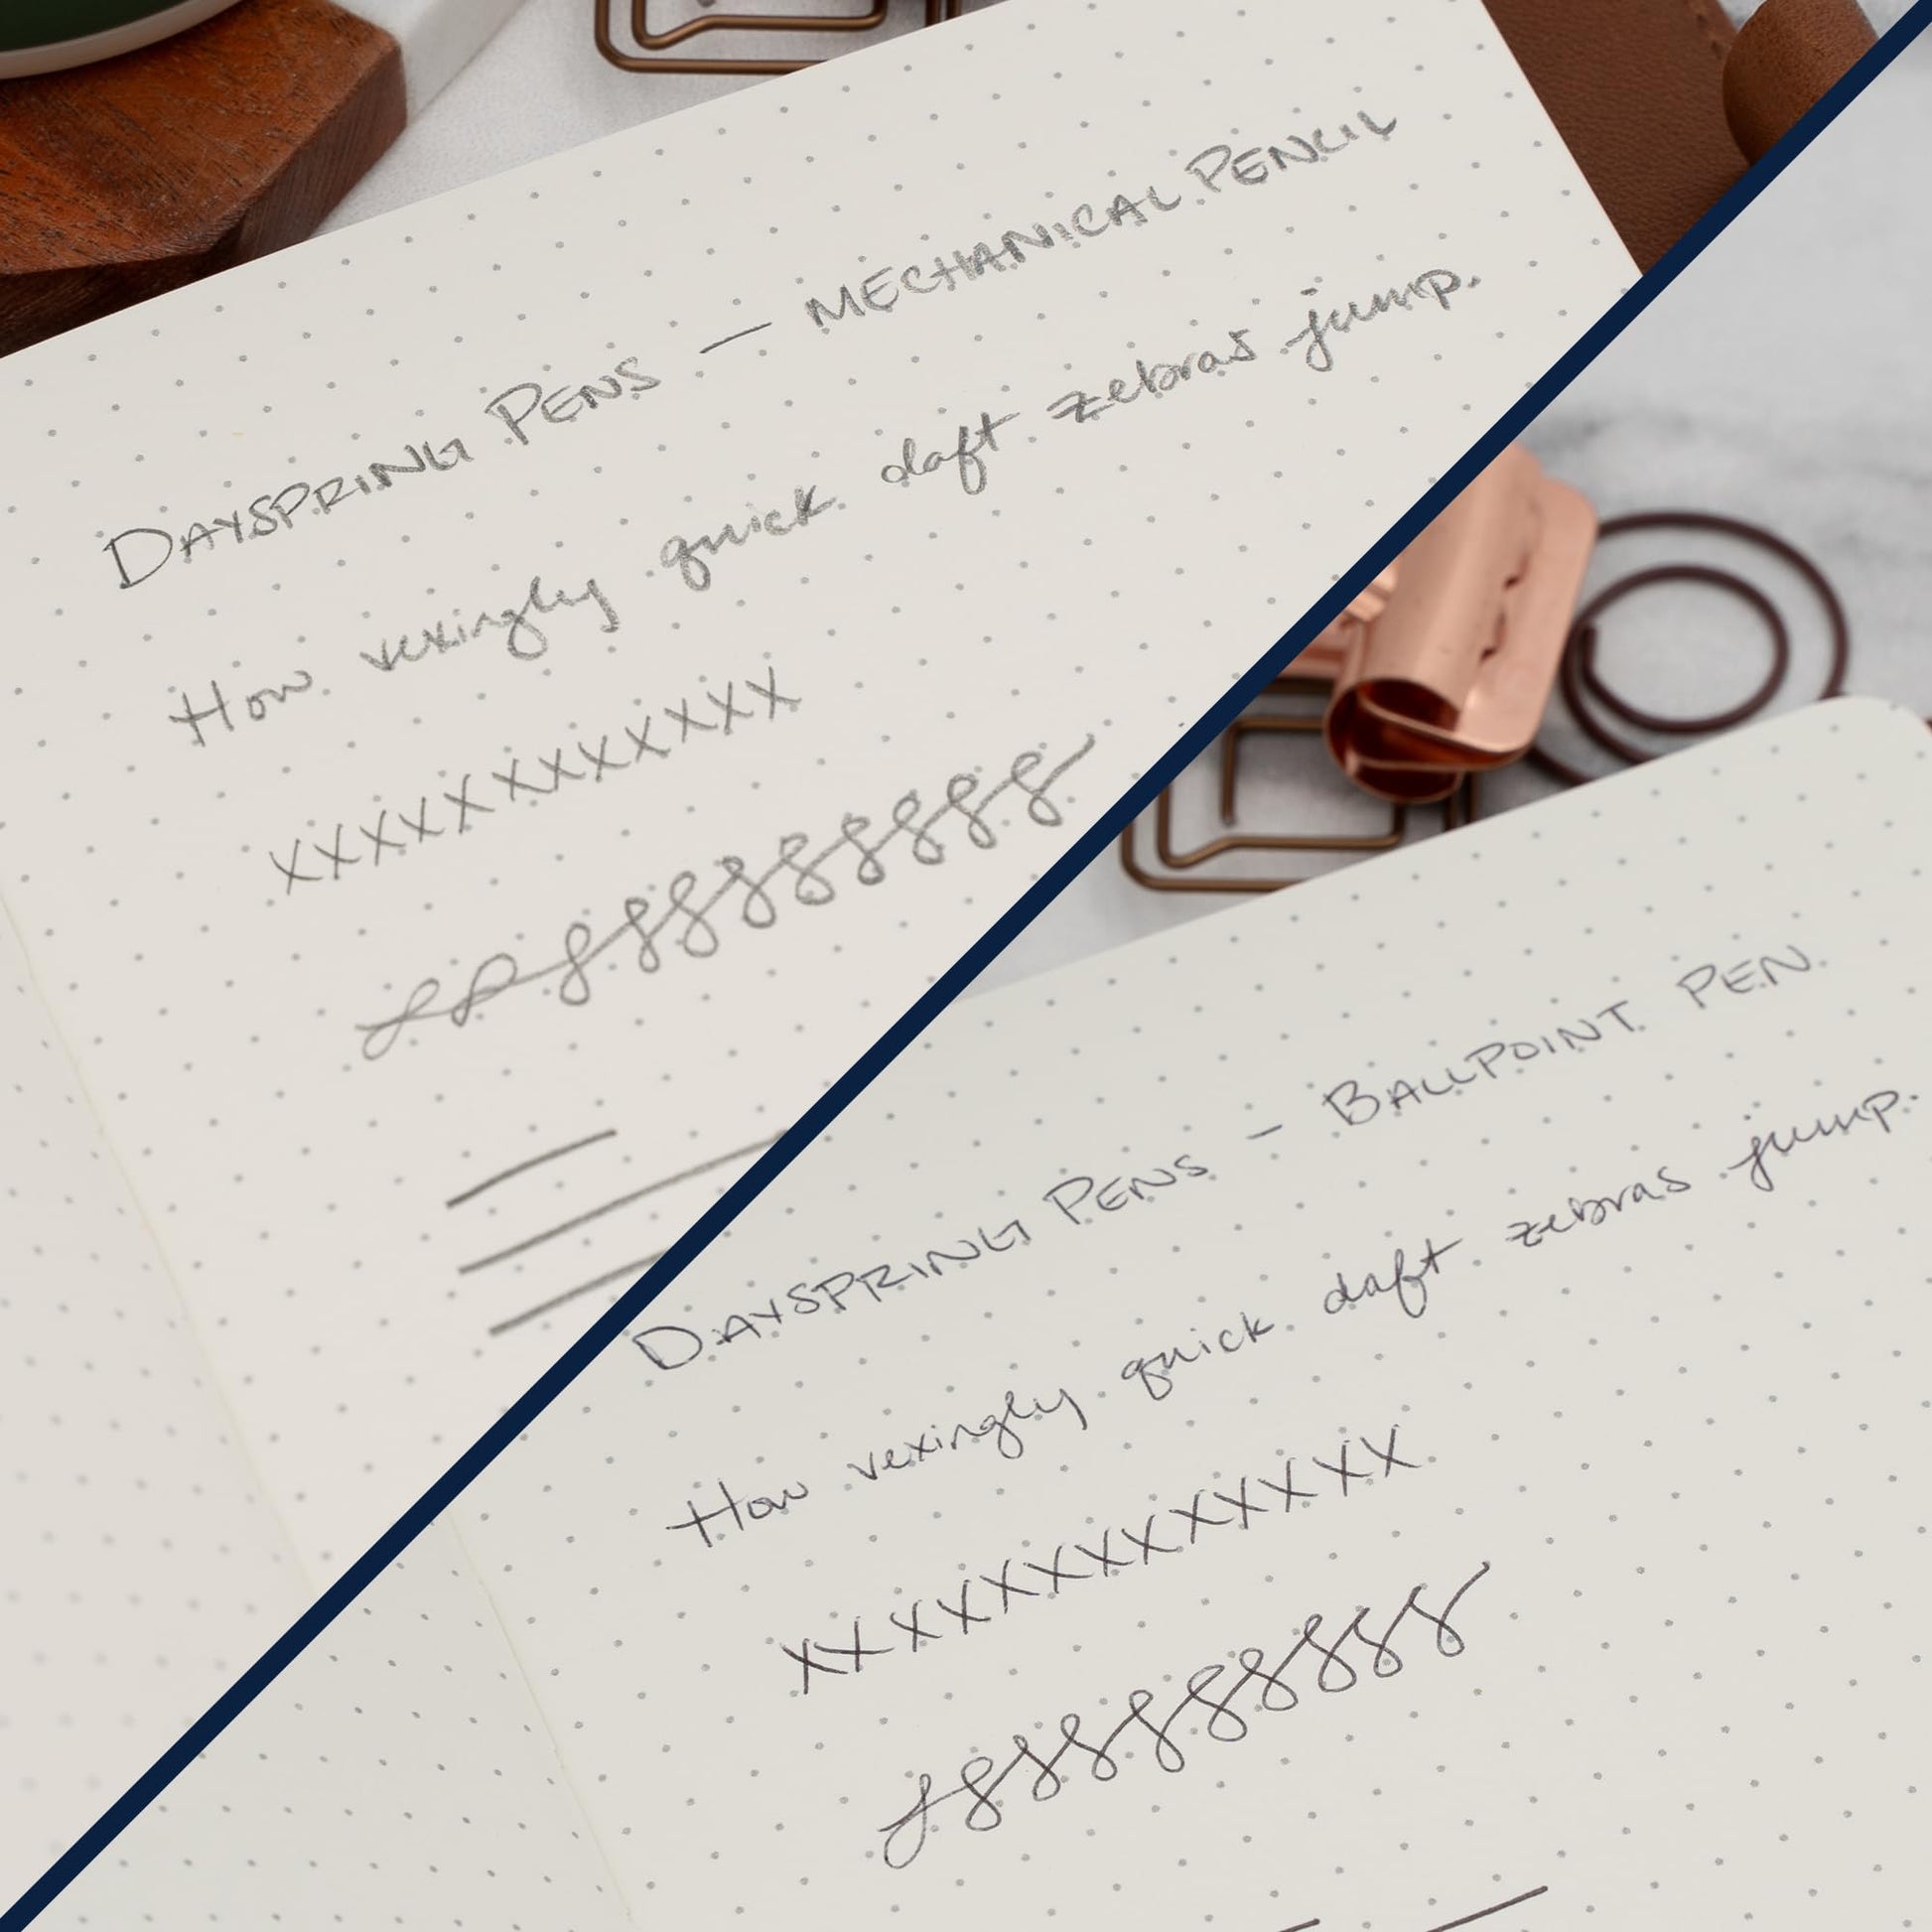 DAYSPRING PENS — MECHANICAL PENCIL
How vexingly quick daft zebras jump.
XXXXXXXXXXXX
DAYSPRING PENS – BALLPOINT PEN
How vexingly quick daft zebras jump.
XXXXXXXXXXXXX